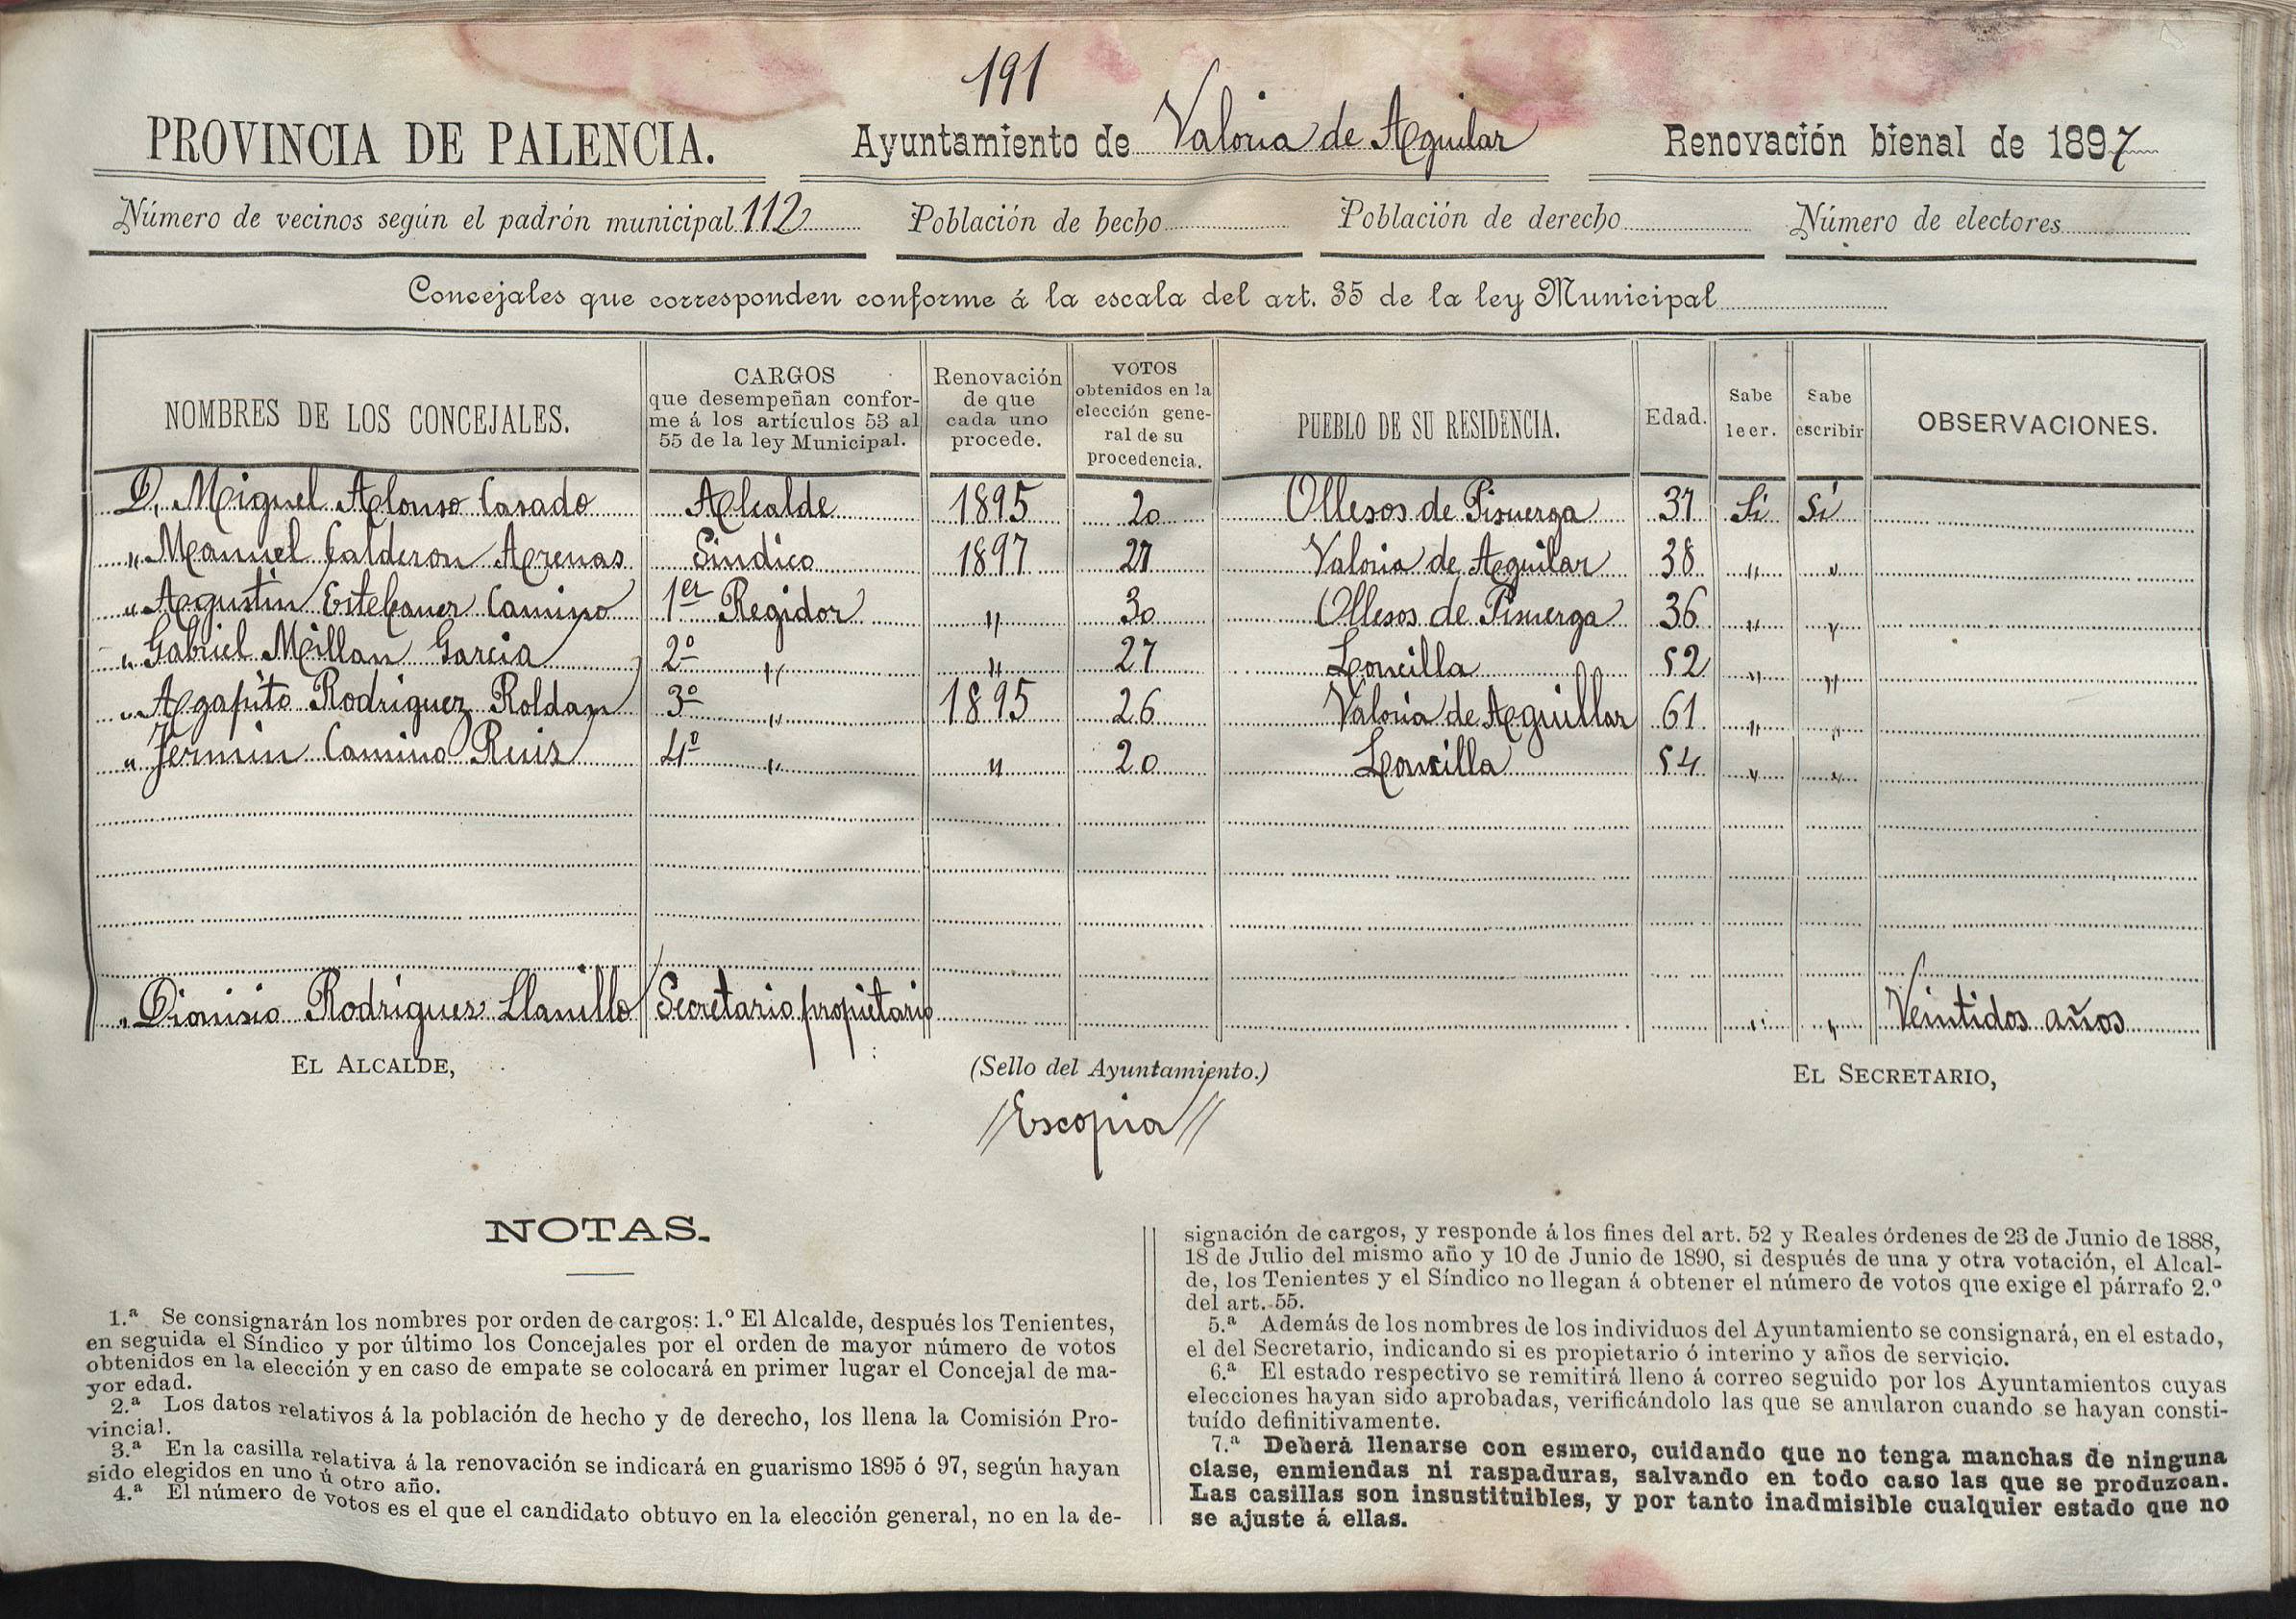 191
PROVINCIA DE PALENCIA. Ayuntamiento de Valoria de Aguilar Renovación bienal de 1897
Número de vecinos según el padrón municipal 112 Población de hecho Población de derecho Número de electores
Concejales que corresponden conforme á la escala del art. 35 de la ley Municipal
NOMBRES DE LOS CONCEJALES.
CARGOS
que desempeñan confor-
me á los artículos 53 al
55 de la ley Municipal.
Renovación
de que
cada uno
procede.
VOTOS
obtenidos en la
elección gene-
ral de su
procedencia.
PUEBLO DE SU RESIDENCIA.
Edad.
Sabe
leer.
Sabe
escribir
OBSERVACIONES.
D. Miguel Alonso Casado Alcalde 1895 20 Ollesos de Pisuerga 37 Si Si
" Manuel Calderon Arenas Sindico 1897 27 Valoria de Aguilar 38 " "
" Agustin Estebanez Camino 1er Regidor " 30 Ollesos de Pisuerga 36 " "
" Gabriel Millan Garcia 2º " " 27 Loncilla 52 " "
" Agapito Rodriguez Roldan 3º " 1895 26 Valoria de Aguillar 61 " "
" Fermin Camino Ruiz 4º " " 20 Loncilla 54 " "
" Dionisio Rodriguez Llanillo Secretario propietario " " Veintidos años
EL ALCALDE, (Sello del Ayuntamiento.) EL SECRETARIO,
//Escopia//
NOTAS.
1.ª Se consignarán los nombres por orden de cargos: 1.º El Alcalde, después los Tenientes,
en seguida el Síndico y por último los Concejales por el orden de mayor número de votos
obtenidos en la elección y en caso de empate se colocará en primer lugar el Concejal de ma-
yor edad.
2.ª Los datos relativos á la población de hecho y de derecho, los llena la Comisión Pro-
vincial.
3.ª En la casilla relativa á la renovación se indicará en guarismo 1895 ó 97, según hayan
sido elegidos en uno ú otro año.
4.ª El número de votos es el que el candidato obtuvo en la elección general, no en la de-
signación de cargos, y responde á los fines del art. 52 y Reales órdenes de 23 de Junio de 1888,
18 de Julio del mismo año y 10 de Junio de 1890, si después de una y otra votación, el Alcal-
de, los Tenientes y el Síndico no llegan á obtener el número de votos que exige el párrafo 2.º
del art. 55.
5.ª Además de los nombres de los individuos del Ayuntamiento se consignará, en el estado,
el del Secretario, indicando si es propietario ó interino y años de servicio.
6.ª El estado respectivo se remitirá lleno á correo seguido por los Ayuntamientos cuyas
elecciones hayan sido aprobadas, verificándolo las que se anularon cuando se hayan consti-
tuído definitivamente.
7.ª Deberá llenarse con esmero, cuidando que no tenga manchas de ninguna
clase, enmiendas ni raspaduras, salvando en todo caso las que se produzcan.
Las casillas son insustituibles, y por tanto inadmisible cualquier estado que no
se ajuste á ellas.